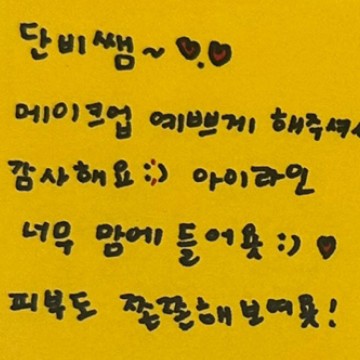 단비쌤~ ♥.♥
메이크업 예쁘게 해주셔서
감사해요:) 아이라인
너무 맘에 들어욧 :) ♥
피부도 쫀쫀해보여욧!